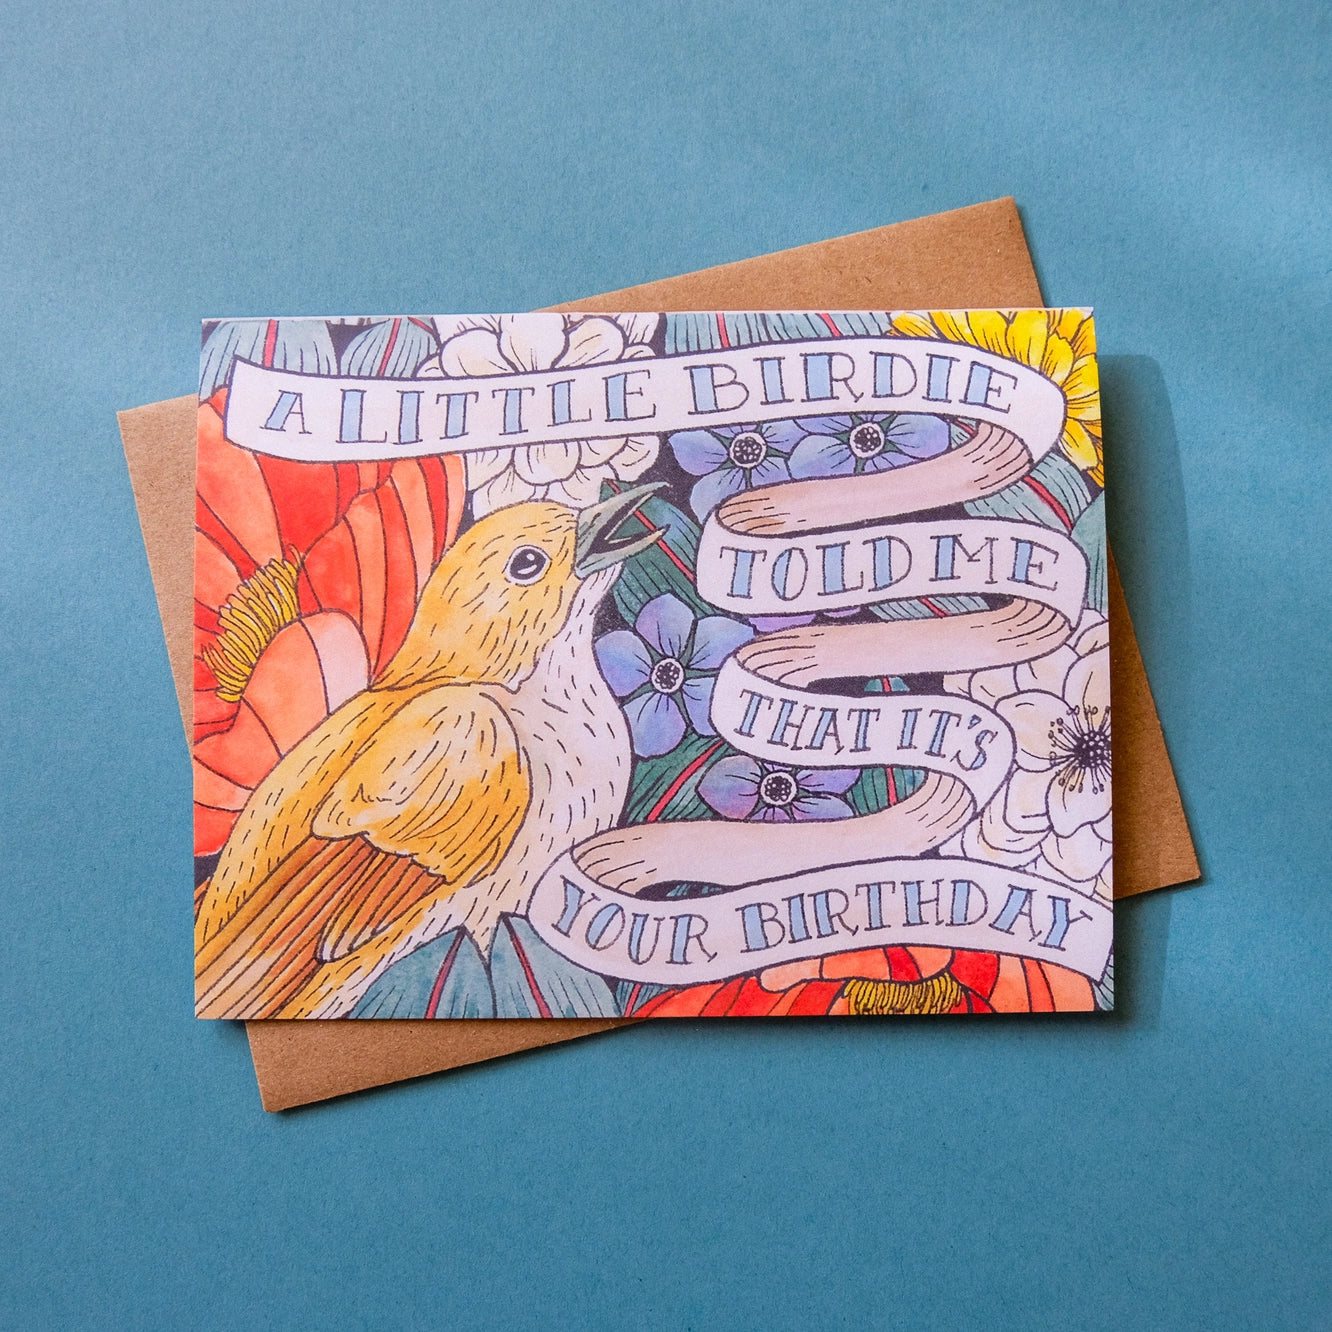 A LITTLE BIRDIE
TOLD ME
THAT IT'S
YOUR BIRTHDAY